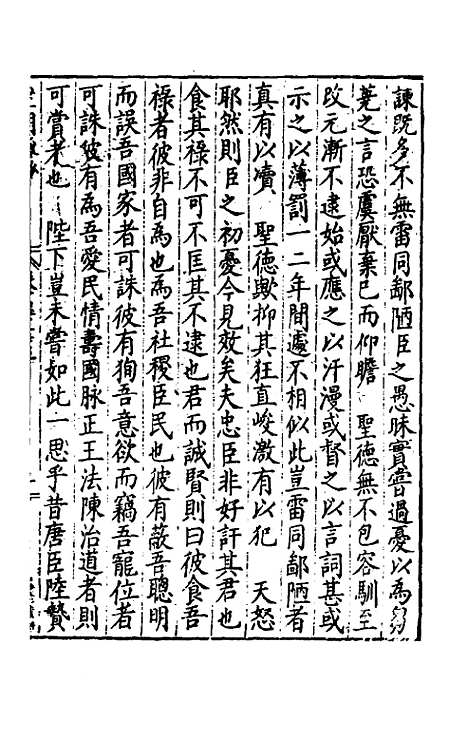 諫既多不無雷同鄙陋臣之愚昧實嘗過憂以為芻
蕘之言恐虞厭棄已而仰瞻 聖德無不包容馴至
改元漸不逮始或應之以汗漫或督之以言詞甚或
示之以薄罰一二年間處不相似此豈雷同鄙陋者
真有以瀆 聖德歟抑其狂直峻激有以犯 天怒
耶然則臣之初憂今見效矣夫忠臣非好訐其君也
食其祿不可不匡其不逮也君而誠賢則曰彼食吾
祿者彼非自為也為吾社稷臣民也彼有蔽吾聰明
而誤吾國家者可誅彼有徇吾意欲而竊吾寵位者
可誅彼有為吾愛民情壽國脉正王法陳治道者則
可賞者也 陛下豈未嘗如此一思乎昔唐臣陸贄